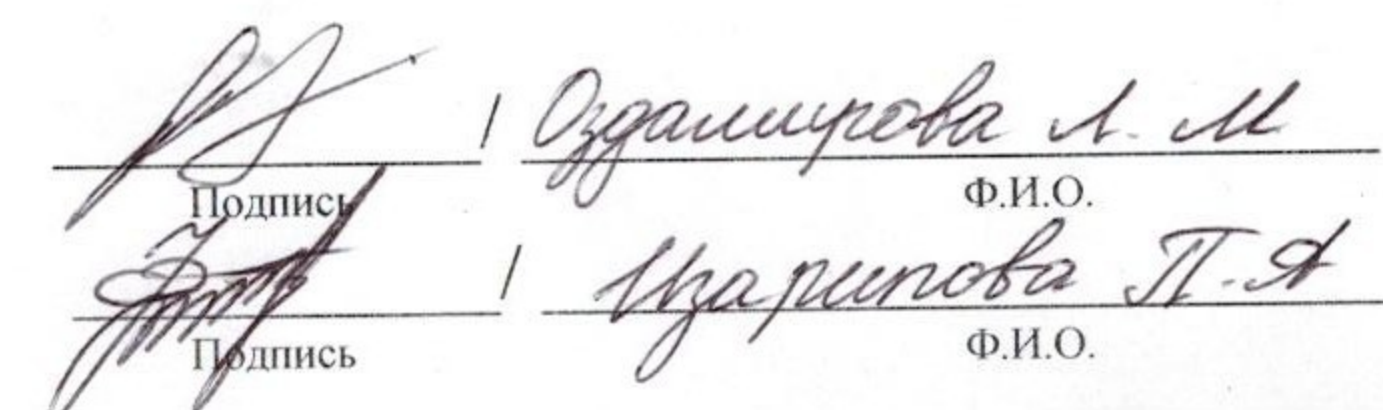 / Оздамирова Л. М
Подпись Ф.И.О.
/ Изарипова П. Я
Подпись Ф.И.О.